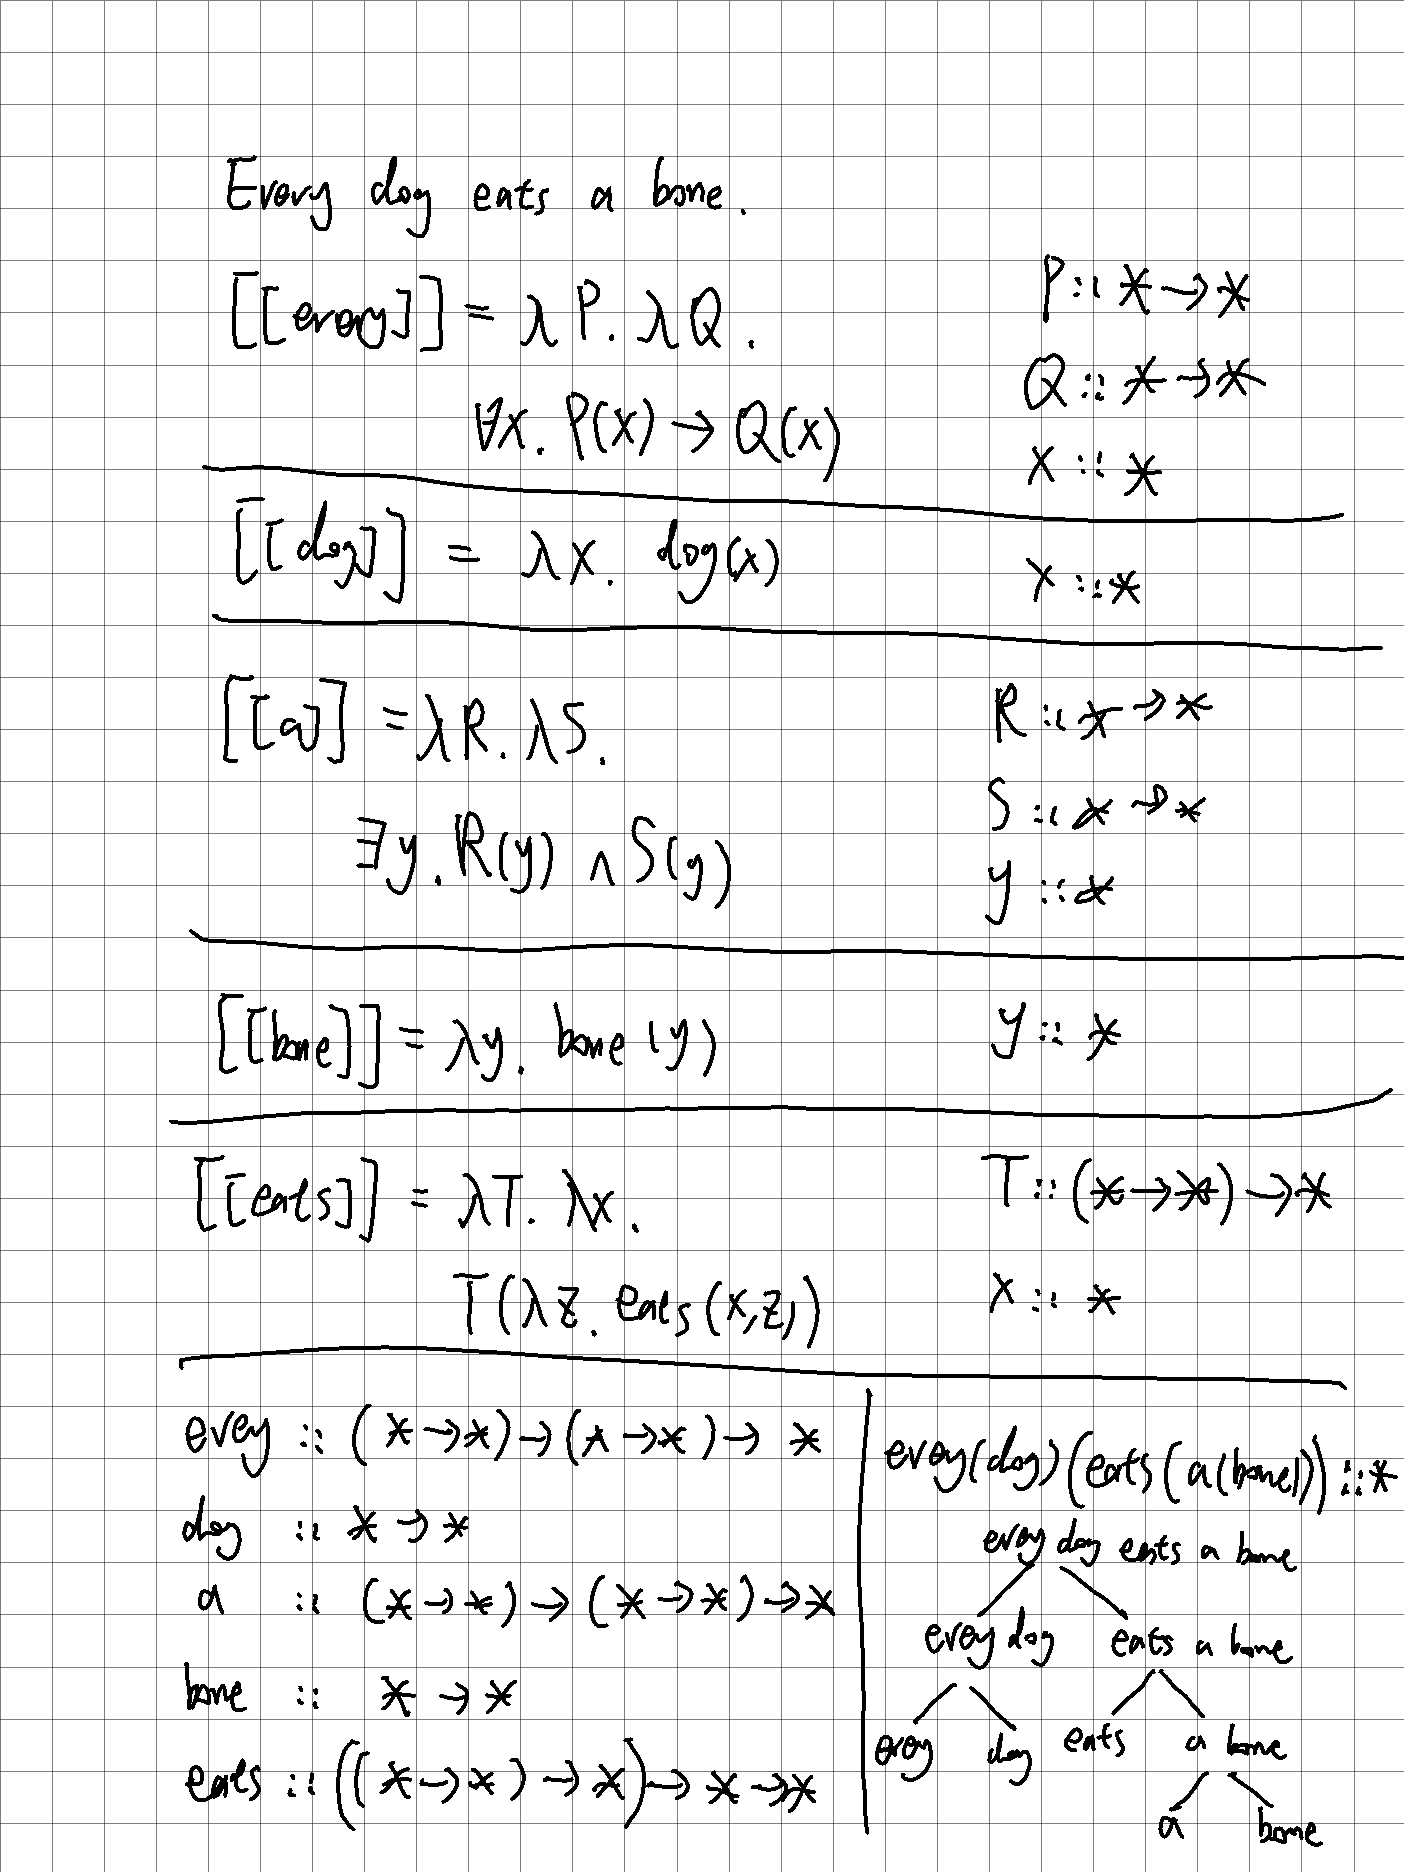 Every dog eats a bone.
[[every]] = λP. λQ.
P :: * → *
Q :: * → *
∀x. P(x) → Q(x)
x :: *
[[dog]] = λx. dog(x)
x :: *
[[a]] = λR. λS.
R :: * → *
S :: * → *
∃y. R(y) ∧ S(y)
y :: *
[[bone]] = λy. bone(y)
y :: *
[[eats]] = λT. λx.
T :: (* → *) → *
T(λz. eats(x,z))
x :: *
every :: (* → *) → (* → *) → *
dog :: * → *
a :: (* → *) → (* → *) → *
bone :: * → *
eats :: ((* → *) → *) → * → *
every(dog)(eats(a(bone))) :: *
every dog eats a bone
every dog eats a bone
every dog eats a bone
a bone